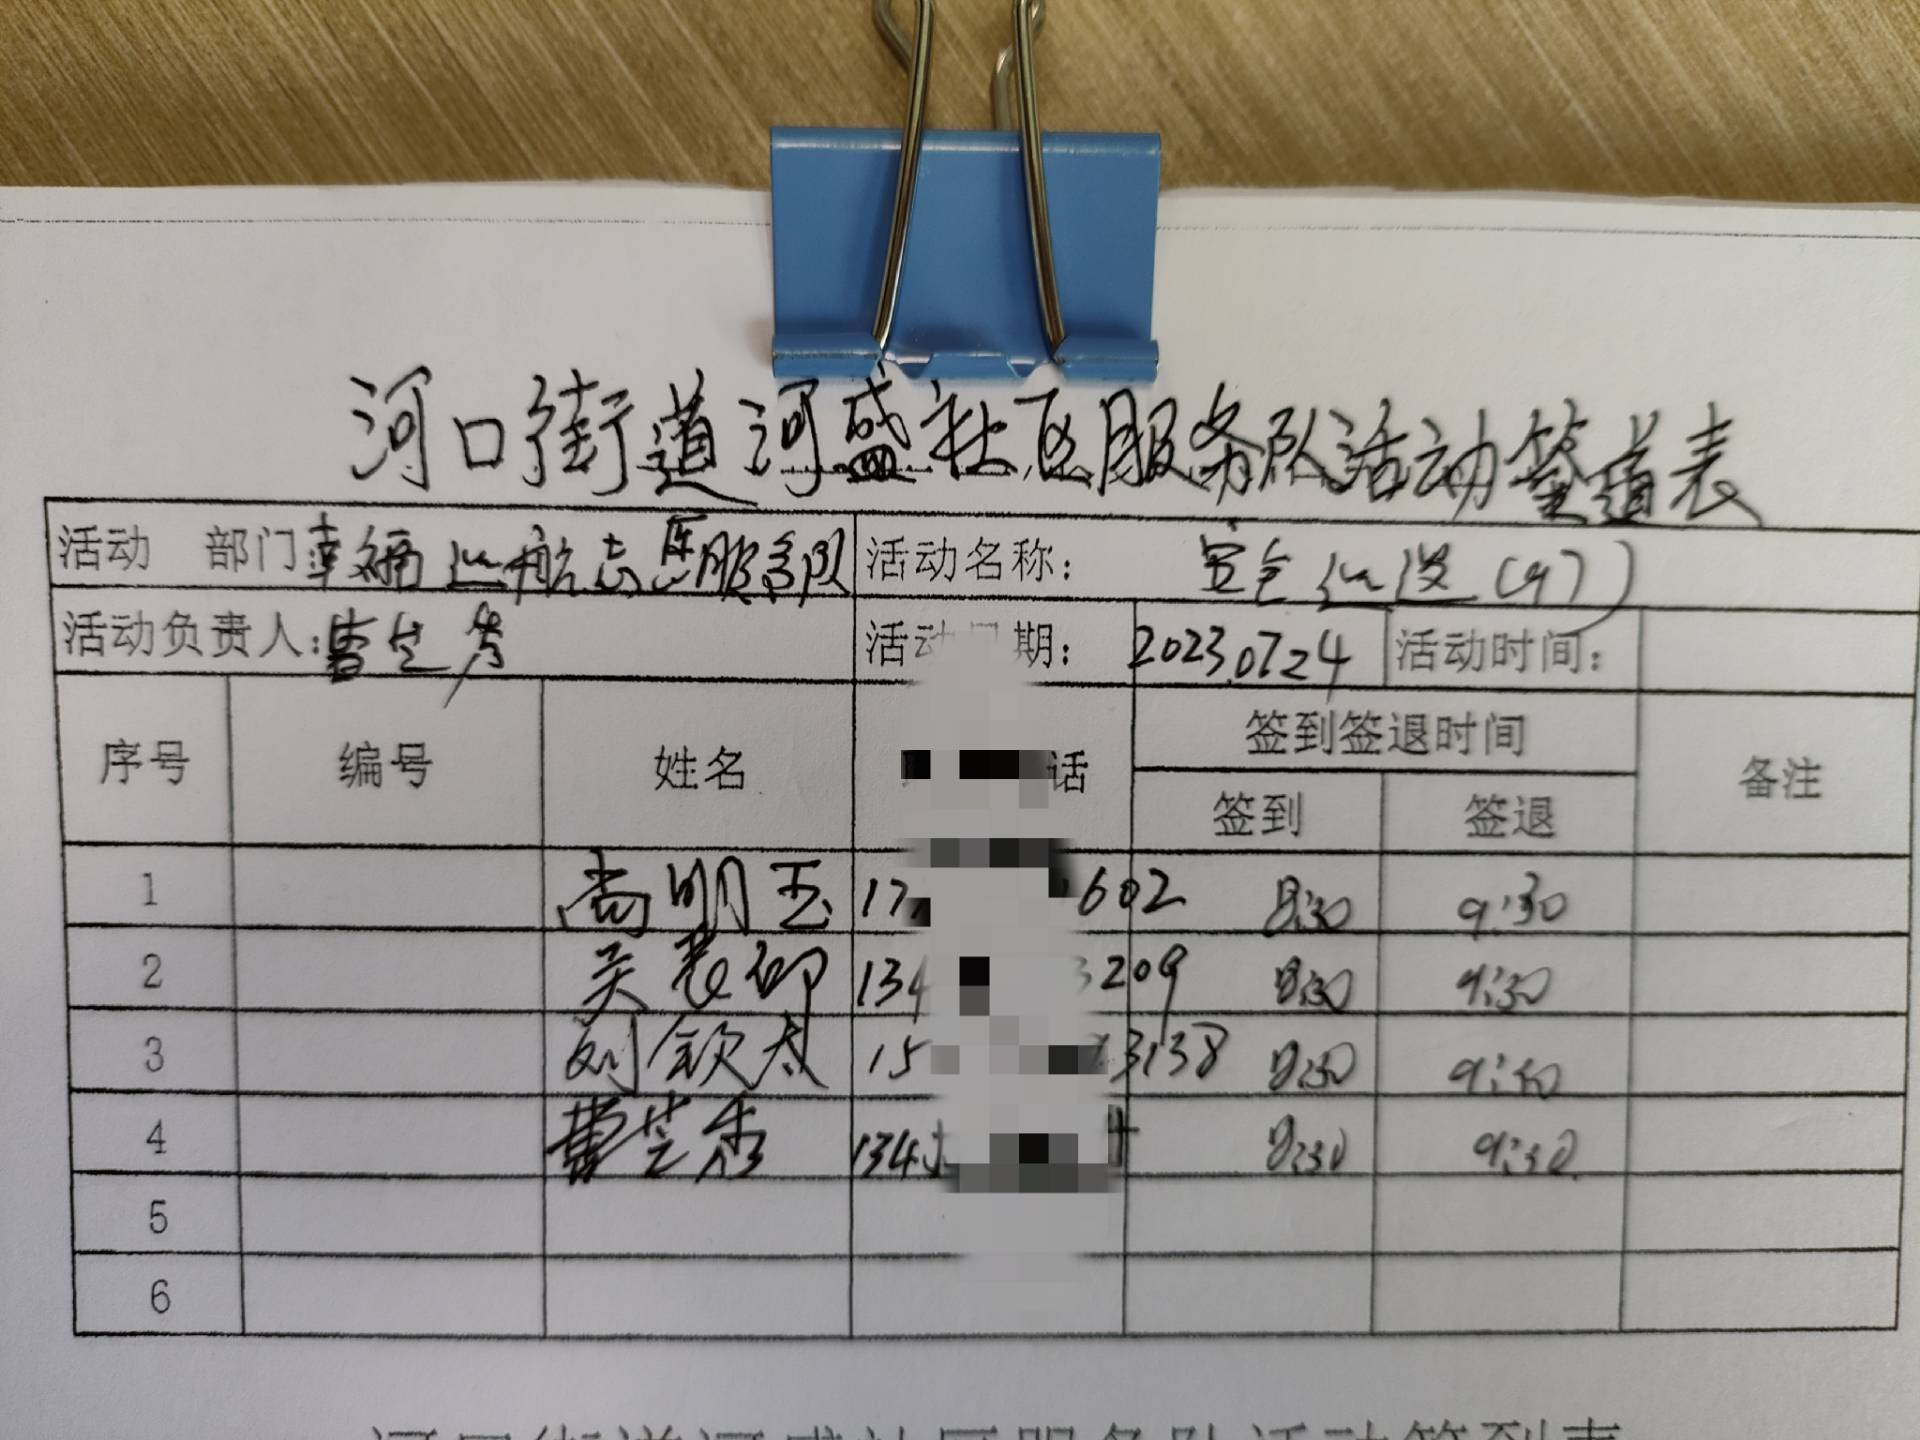 河口街道河盛社区服务队活动签道表
活动 部门 幸福巡航志愿服务队 活动名称： 安全巡逻（97）
活动负责人： 2023.0724 活动时间：
序号 编号 姓名 话 签到签退时间 备注
签到 签退
1 尚明玉 17 602 8:30 9:30
2 134 3209 8:30 9:30
3 刘钦太 15 3138 8:30 9:30
4 曹芝秀 134 8:30 9:30
5
6